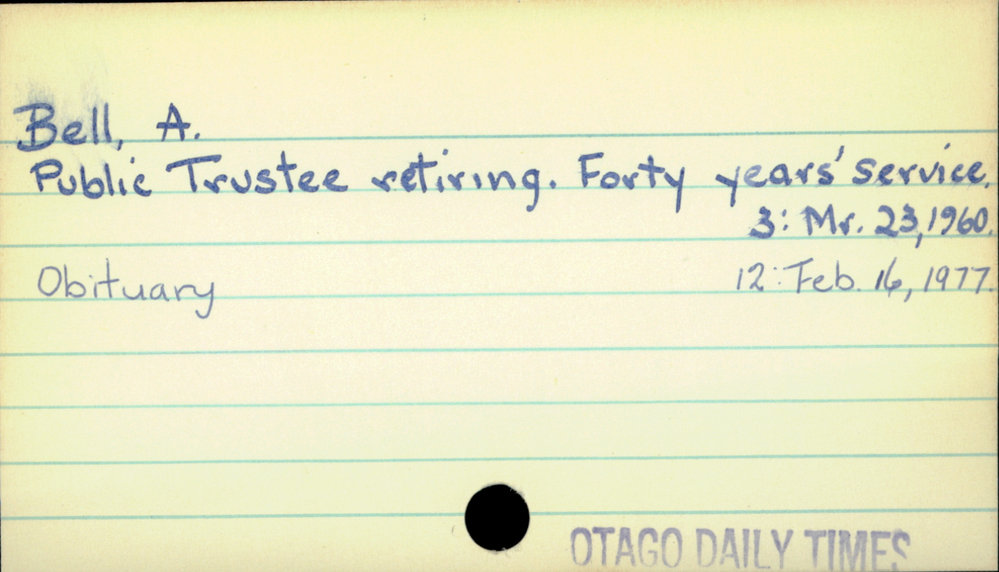 Bell, A.
Public Trustee retiring. Forty years' service.
3: Mr. 23, 1960.
Obituary 12: Feb. 16, 1977.
OTAGO DAILY TIMES